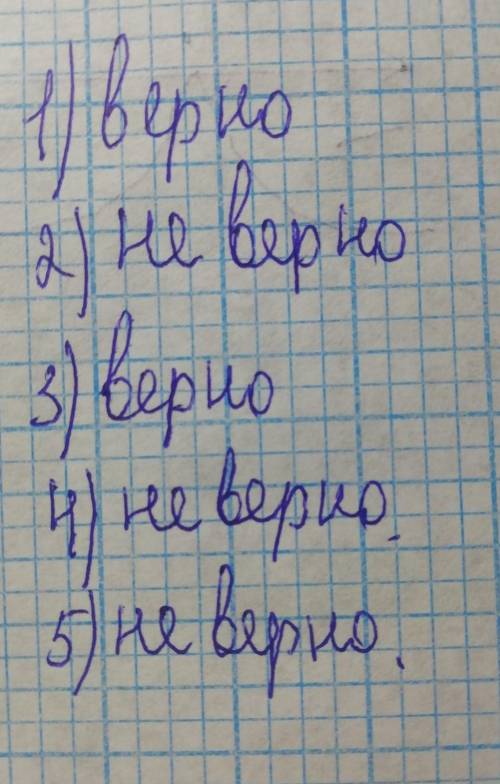 1) верно
2) не верно
3) верно
4) не верно.
5) не верно.